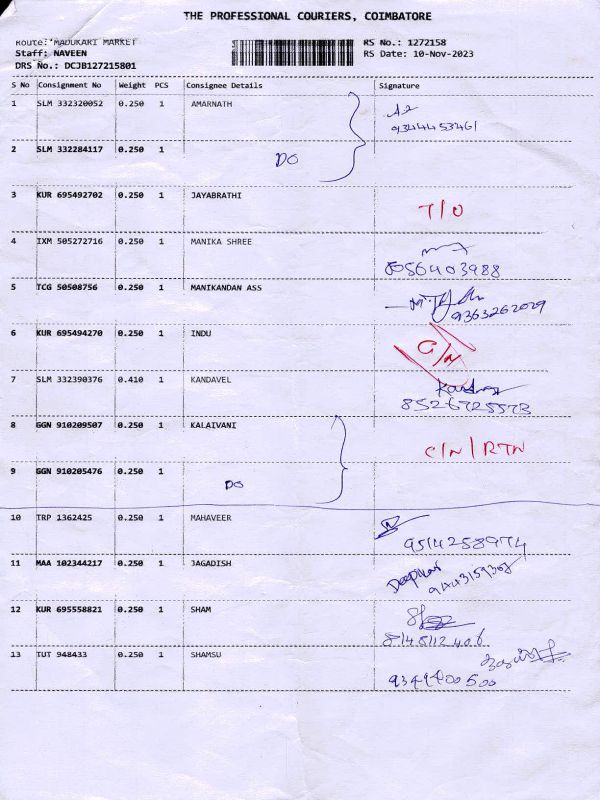 THE PROFESSIONAL COURIERS, COIMBATORE
Route: MADUKARI MARKET
RS No.: 1272158
Staff: NAVEEN
RS Date: 10-Nov-2023
DRS No.: DCJB127215801
S No Consignment No Weight PCS Consignee Details Signature
1 SLM 332320052 0.250 1 AMARNATH
9344453461
2 SLM 332284117 0.250 1 DO
3 KUR 695492702 0.250 1 JAYABRATHI T/O
4 IXM 505272716 0.250 1 MANIKA SHREE
8056403988
5 TCG 50508756 0.250 1 MANIKANDAN ASS
9363262029
6 KUR 695494270 0.250 1 INDU C/N
7 SLM 332390376 0.410 1 KANDAVEL
8526725573
8 GGN 910209507 0.250 1 KALAIVANI C/N/RTN
9 GGN 910205476 0.250 1 DO
10 TRP 1362425 0.250 1 MAHAVEER
9514258974
11 MAA 102344217 0.250 1 JAGADISH
12 KUR 695558821 0.250 1 SHAM
8148112406
13 TUT 948433 0.250 1 SHAMSU
9349400500